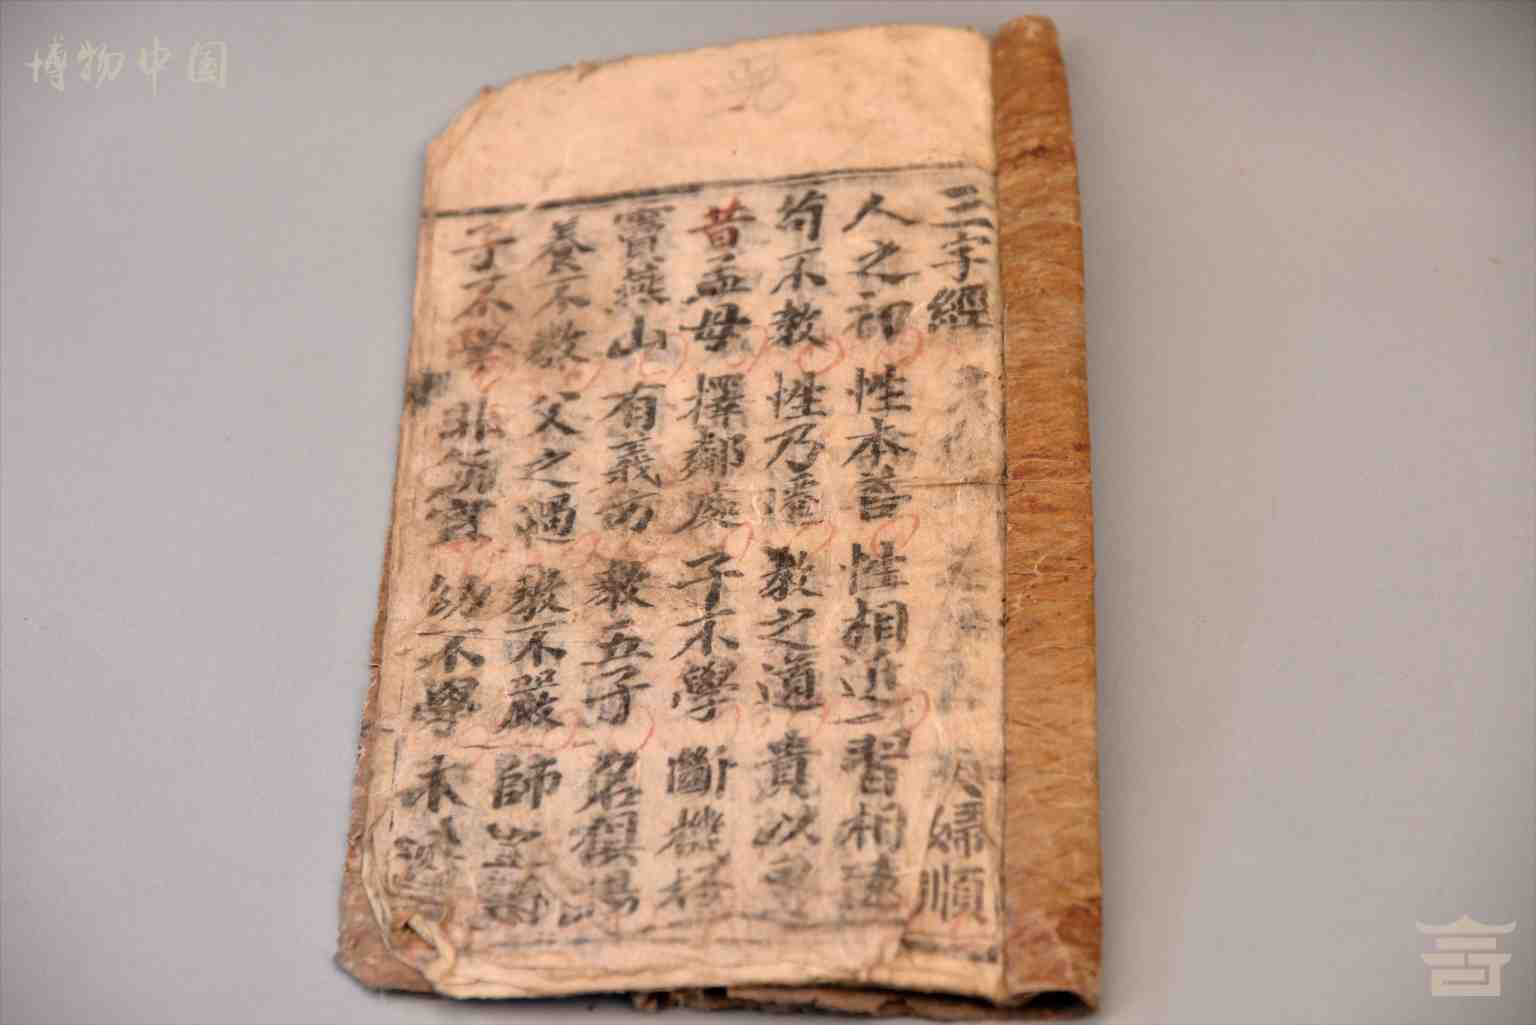 博物中国
三字經 婦順
人之初 性本善 性相近 習相遠
苟不教 性乃遷 教之道 貴以專
昔孟母 擇鄰處 子不學 斷機杼
竇燕山 有義方 教五子 名俱揚
養不教 父之過 教不嚴 師之惰
子不學 非所宜 幼不學 老何